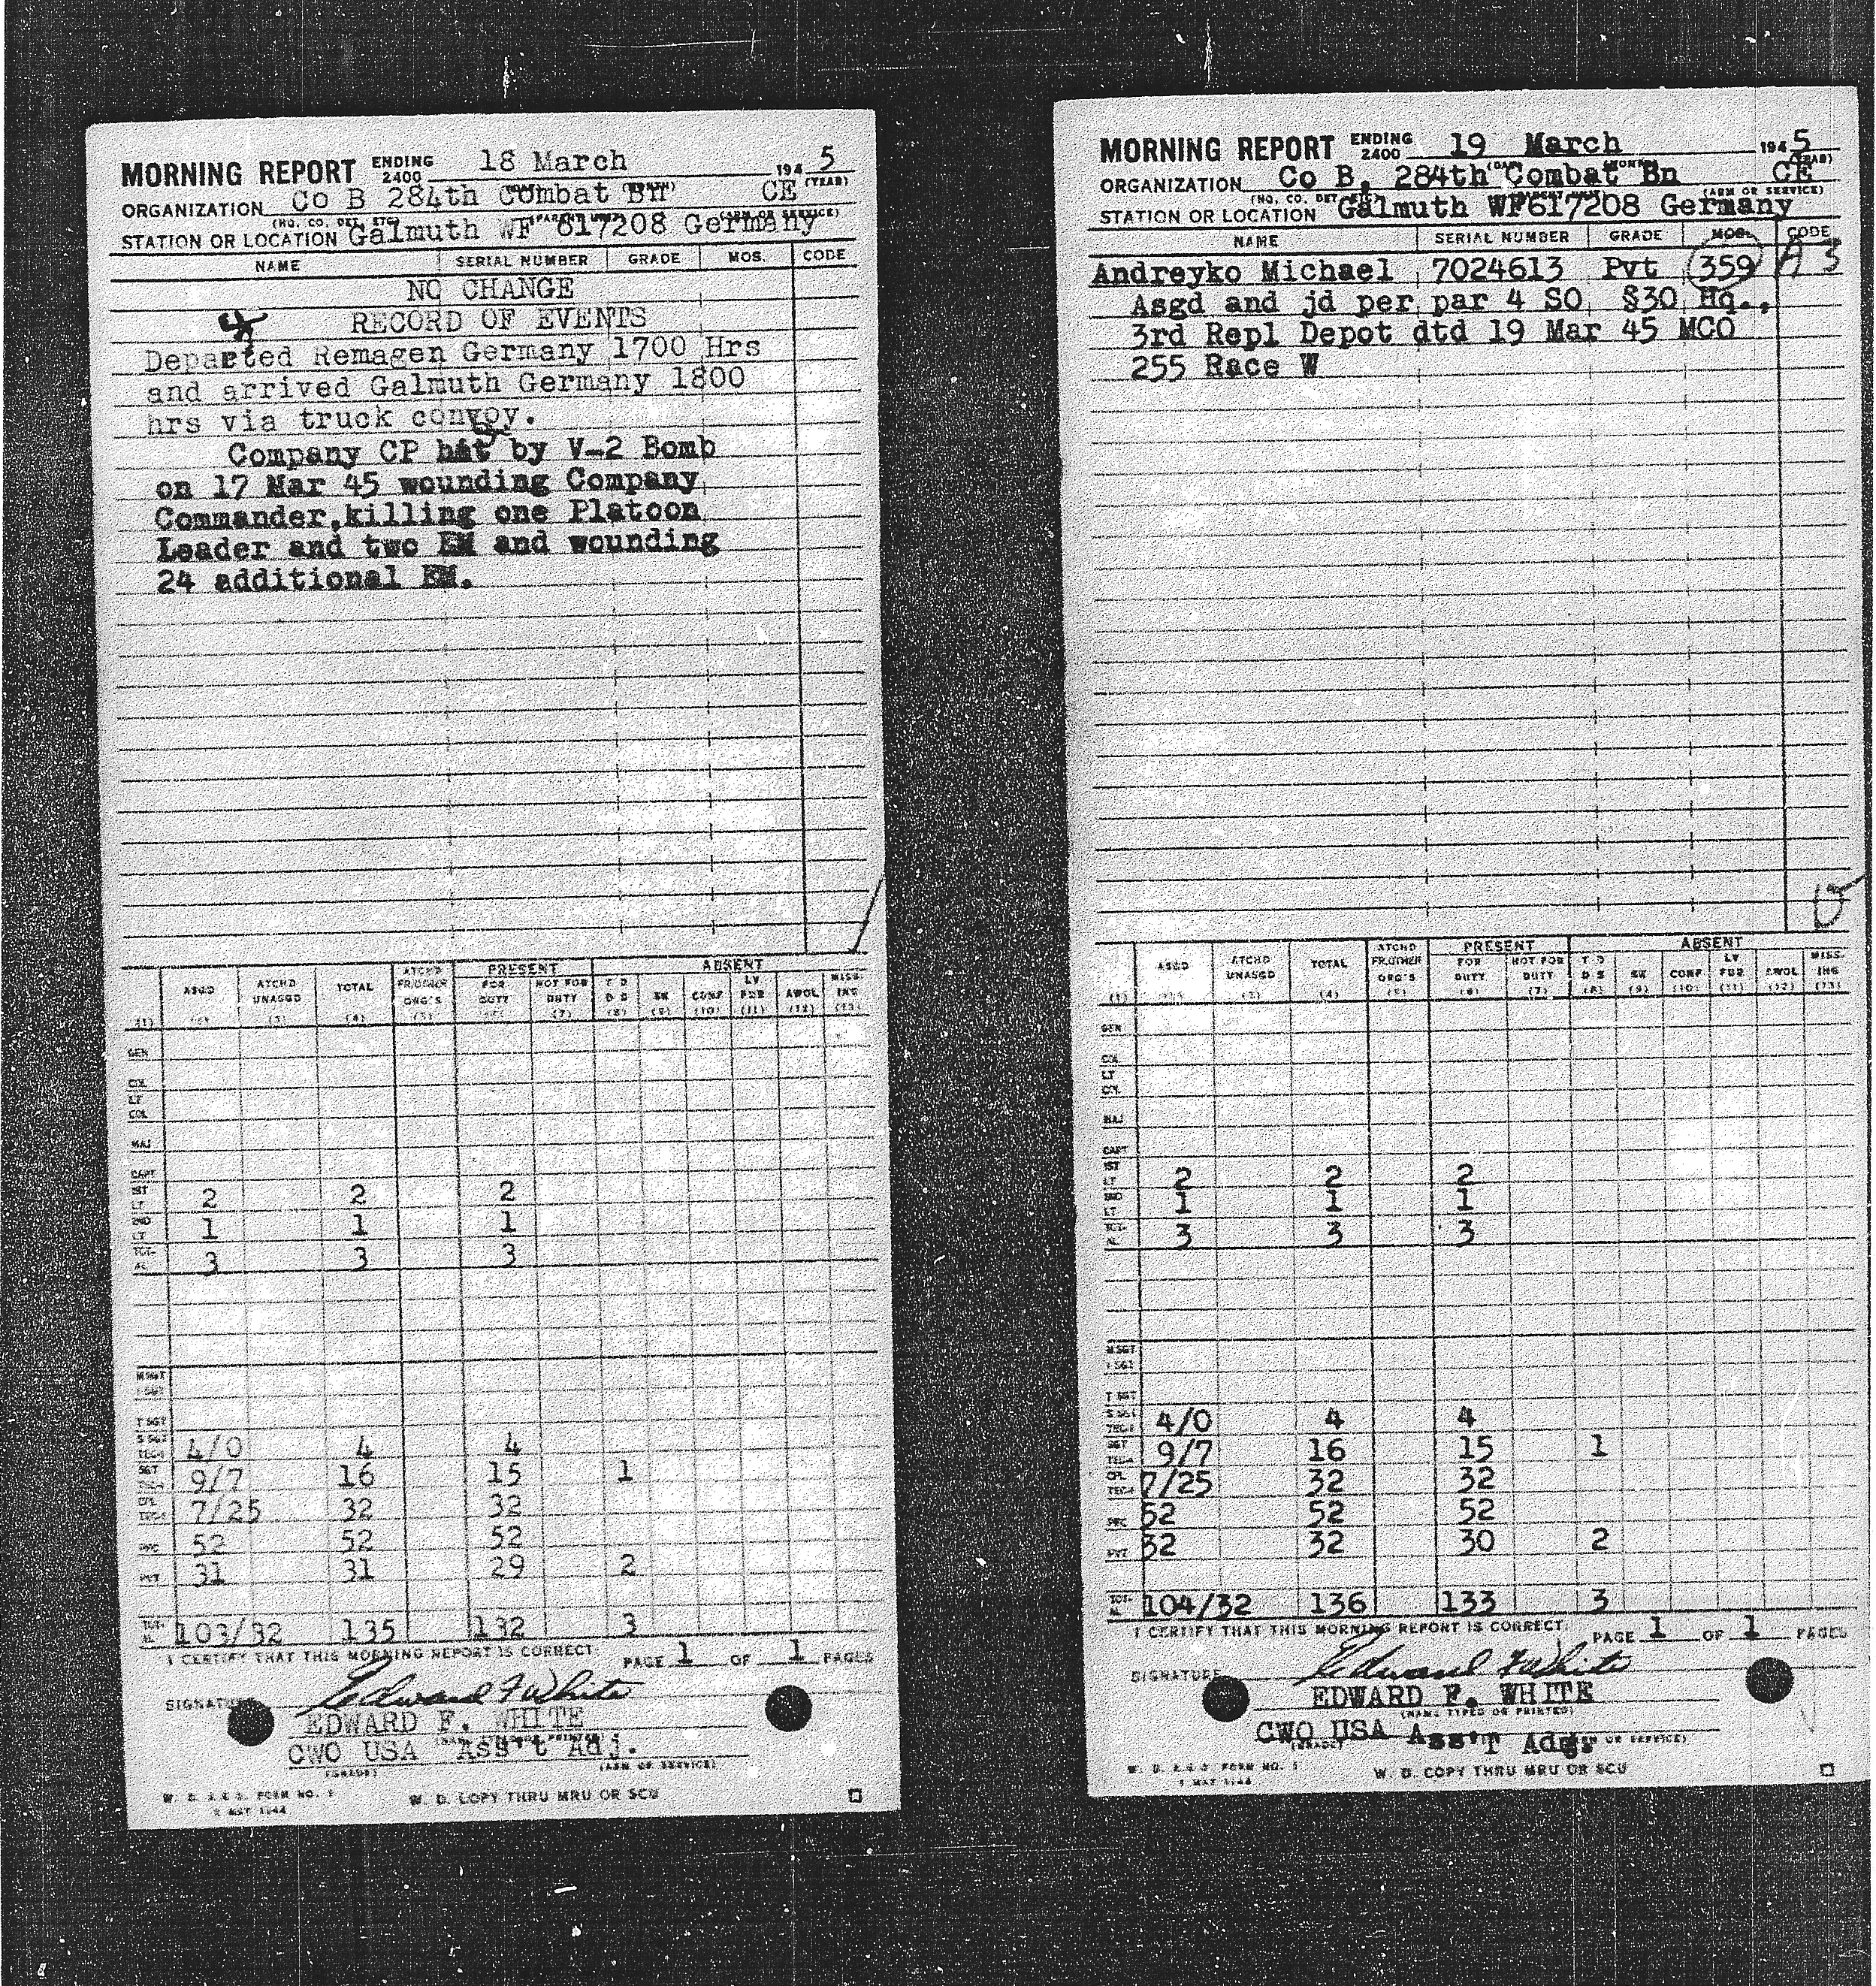 MORNING REPORT ENDING 2400 18 March 1945
(YEAR)
ORGANIZATION Co B 284th Combat Bn CE
STATION OR LOCATION Galmuth WF 617208 Germany
NAME SERIAL NUMBER GRADE MOS. CODE
NO CHANGE
RECORD OF EVENTS
Departed Remagen Germany 1700 Hrs
and arrived Galmuth Germany 1800
hrs via truck convoy.
Company CP hit by V-2 Bomb
on 17 Mar 45 wounding Company
Commander,killing one Platoon
Leader and two EM and wounding
24 additional EM.
PRESENT ABSENT
ASGD ATCHD UNASGD TOTAL ATCHD FR OTHER ORG'S FOR DUTY NOT FOR DUTY T D D S SK CONF LV FUR AWOL MISS-ING
(1) (2) (3) (4) (5) (6) (7) (8) (9) (10) (11) (12) (13)
GEN
COL
LT COL
MAJ
CAPT
1ST LT 2 2 2
2ND LT 1 1 1
TOT-AL 3 3 3
M SGT
1 SGT
T SGT
S SGT 4/0 4 4
SGT 9/7 16 15 1
CPL 7/25 32 32
PFC 52 52 52
PVT 31 31 29 2
TOT-AL 103/32 135 132 3
I CERTIFY THAT THIS MORNING REPORT IS CORRECT.
PAGE 1 OF 1 PAGES
SIGNATURE Edward F White
EDWARD F. WHITE
CWO USA Ass't Adj.
(GRADE) (ARM OR SERVICE)
W. D. A.G.O. FORM NO. 1
W. D. COPY THRU MRU OR SCU
MORNING REPORT ENDING 2400 19 March 1945
(YEAR)
ORGANIZATION Co B, 284th Combat Bn CE
(HQ. CO. DET. ETC.) (ARM OR SERVICE)
STATION OR LOCATION Galmuth WF617208 Germany
NAME SERIAL NUMBER GRADE MOS. CODE
Andreyko Michael 7024613 Pvt 359 A 3
Asgd and jd per par 4 SO §30 Hq.,
3rd Repl Depot dtd 19 Mar 45 MCO
255 Race W
PRESENT ABSENT
ASGD ATCHD UNASGD TOTAL ATCHD FR OTHER ORG'S FOR DUTY NOT FOR DUTY T D D S SK CONF LV FUR AWOL MISS-ING
(1) (2) (3) (4) (5) (6) (7) (8) (9) (10) (11) (12) (13)
GEN
COL
LT COL
MAJ
CAPT
1ST LT 2 2 2
2ND LT 1 1 1
TOT-AL 3 3 3
M SGT
1 SGT
T SGT
S SGT 4/0 4 4
SGT 9/7 16 15 1
CPL 7/25 32 32
PFC 52 52 52
PVT 32 32 30 2
TOT-AL 104/32 136 133 3
I CERTIFY THAT THIS MORNING REPORT IS CORRECT.
PAGE 1 OF 1 PAGES
SIGNATURE Edward F White
EDWARD F. WHITE
(NAME TYPED OR PRINTED)
CWO USA Ass'T Adg.
(GRADE) (ARM OR SERVICE)
W. D. A.G.O. FORM NO. 1
W. D. COPY THRU MRU OR SCU